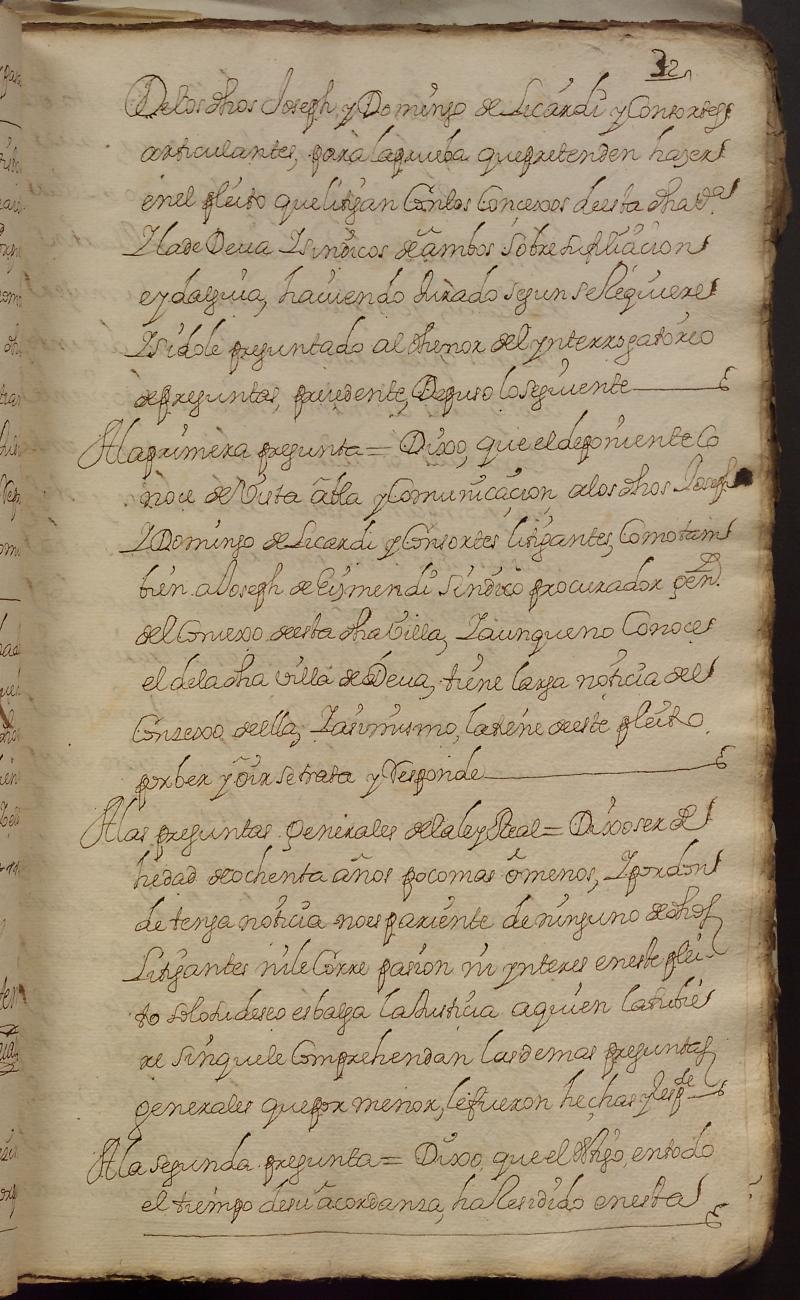 32
De los dhos Joseph, y Domingo de Licardi y Consortes
articulantes, para la prueba que pretenden hazer
en el pleito que litigan Con los Concexos de esta dha Va
Y la de Deua Y sindicos de ambos sobre su filiacion
e ydalguia, hauiendo Jurado segun se Requiere
Y sidole preguntado al thenor del ynterrogatorio
de preguntas, precedente, Depuso lo seguiente
A la primera pregunta = Dixo, que el deponiente Co
noce de Vista abla y Comunicacion, a los dhos Joseph
Y Domingo de Licardi y Consortes litigantes, Como tam
bien a Joseph de Eizmendi Sindico procurador gen.l
del Concexo de esta dha Villa, Y aunque no Conoce
el de la dha villa de Deua, tiene larga noticia del
Conzexo de ella, Y asimismo, la tiene de este pleito,
por ber y oir se trata y Responde
A las preguntas generales de la ley Real = Dixo ser de
hedad de ochenta años poco mas o menos, Y por don
de tenga noticia no es pariente de ninguno de dhos
Litigantes ni le Corre pasion ni ynteres en este plei
to solo su deseo es balga la Justicia a quien la tubie
re sin que le Comprehendan las demas preguntas
generales que por menor, le fueron hechas y Resp.de
A la segunda pregunta = Dixo, que el tt.igo, en todo
el tiempo de su acordanza, ha Residido en esta